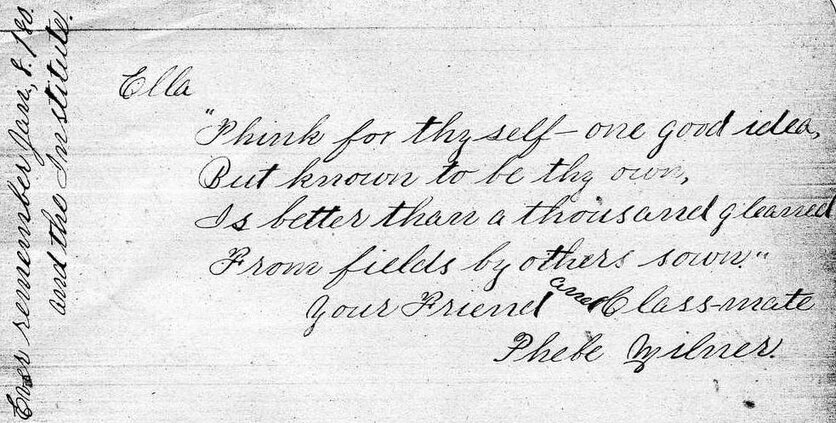 Ella
"Think for thyself – one good idea,
But known to be thy own,
Is better than a thousand gleaned
From fields by others sown."
Your Friend and Class-mate
Phebe Milner.
Ever remember Jan, 8. 180.
and the Institute.